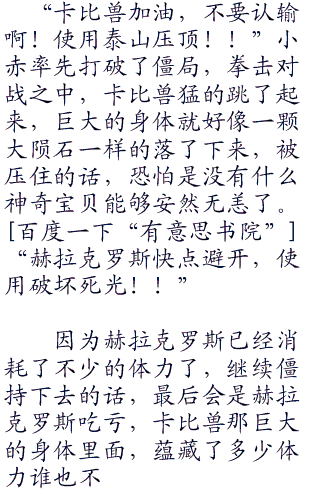 “卡比兽加油，不要认输
啊！使用泰山压顶！！”小
赤率先打破了僵局，拳击对
战之中，卡比兽猛的跳了起
来，巨大的身体就好像一颗
大陨石一样的落了下来，被
压住的话，恐怕是没有什么
神奇宝贝能够安然无恙了。
[百度一下“有意思书院”]
“赫拉克罗斯快点避开，使
用破坏死光！！”
因为赫拉克罗斯已经消
耗了不少的体力了，继续僵
持下去的话，最后会是赫拉
克罗斯吃亏，卡比兽那巨大
的身体里面，蕴藏了多少体
力谁也不